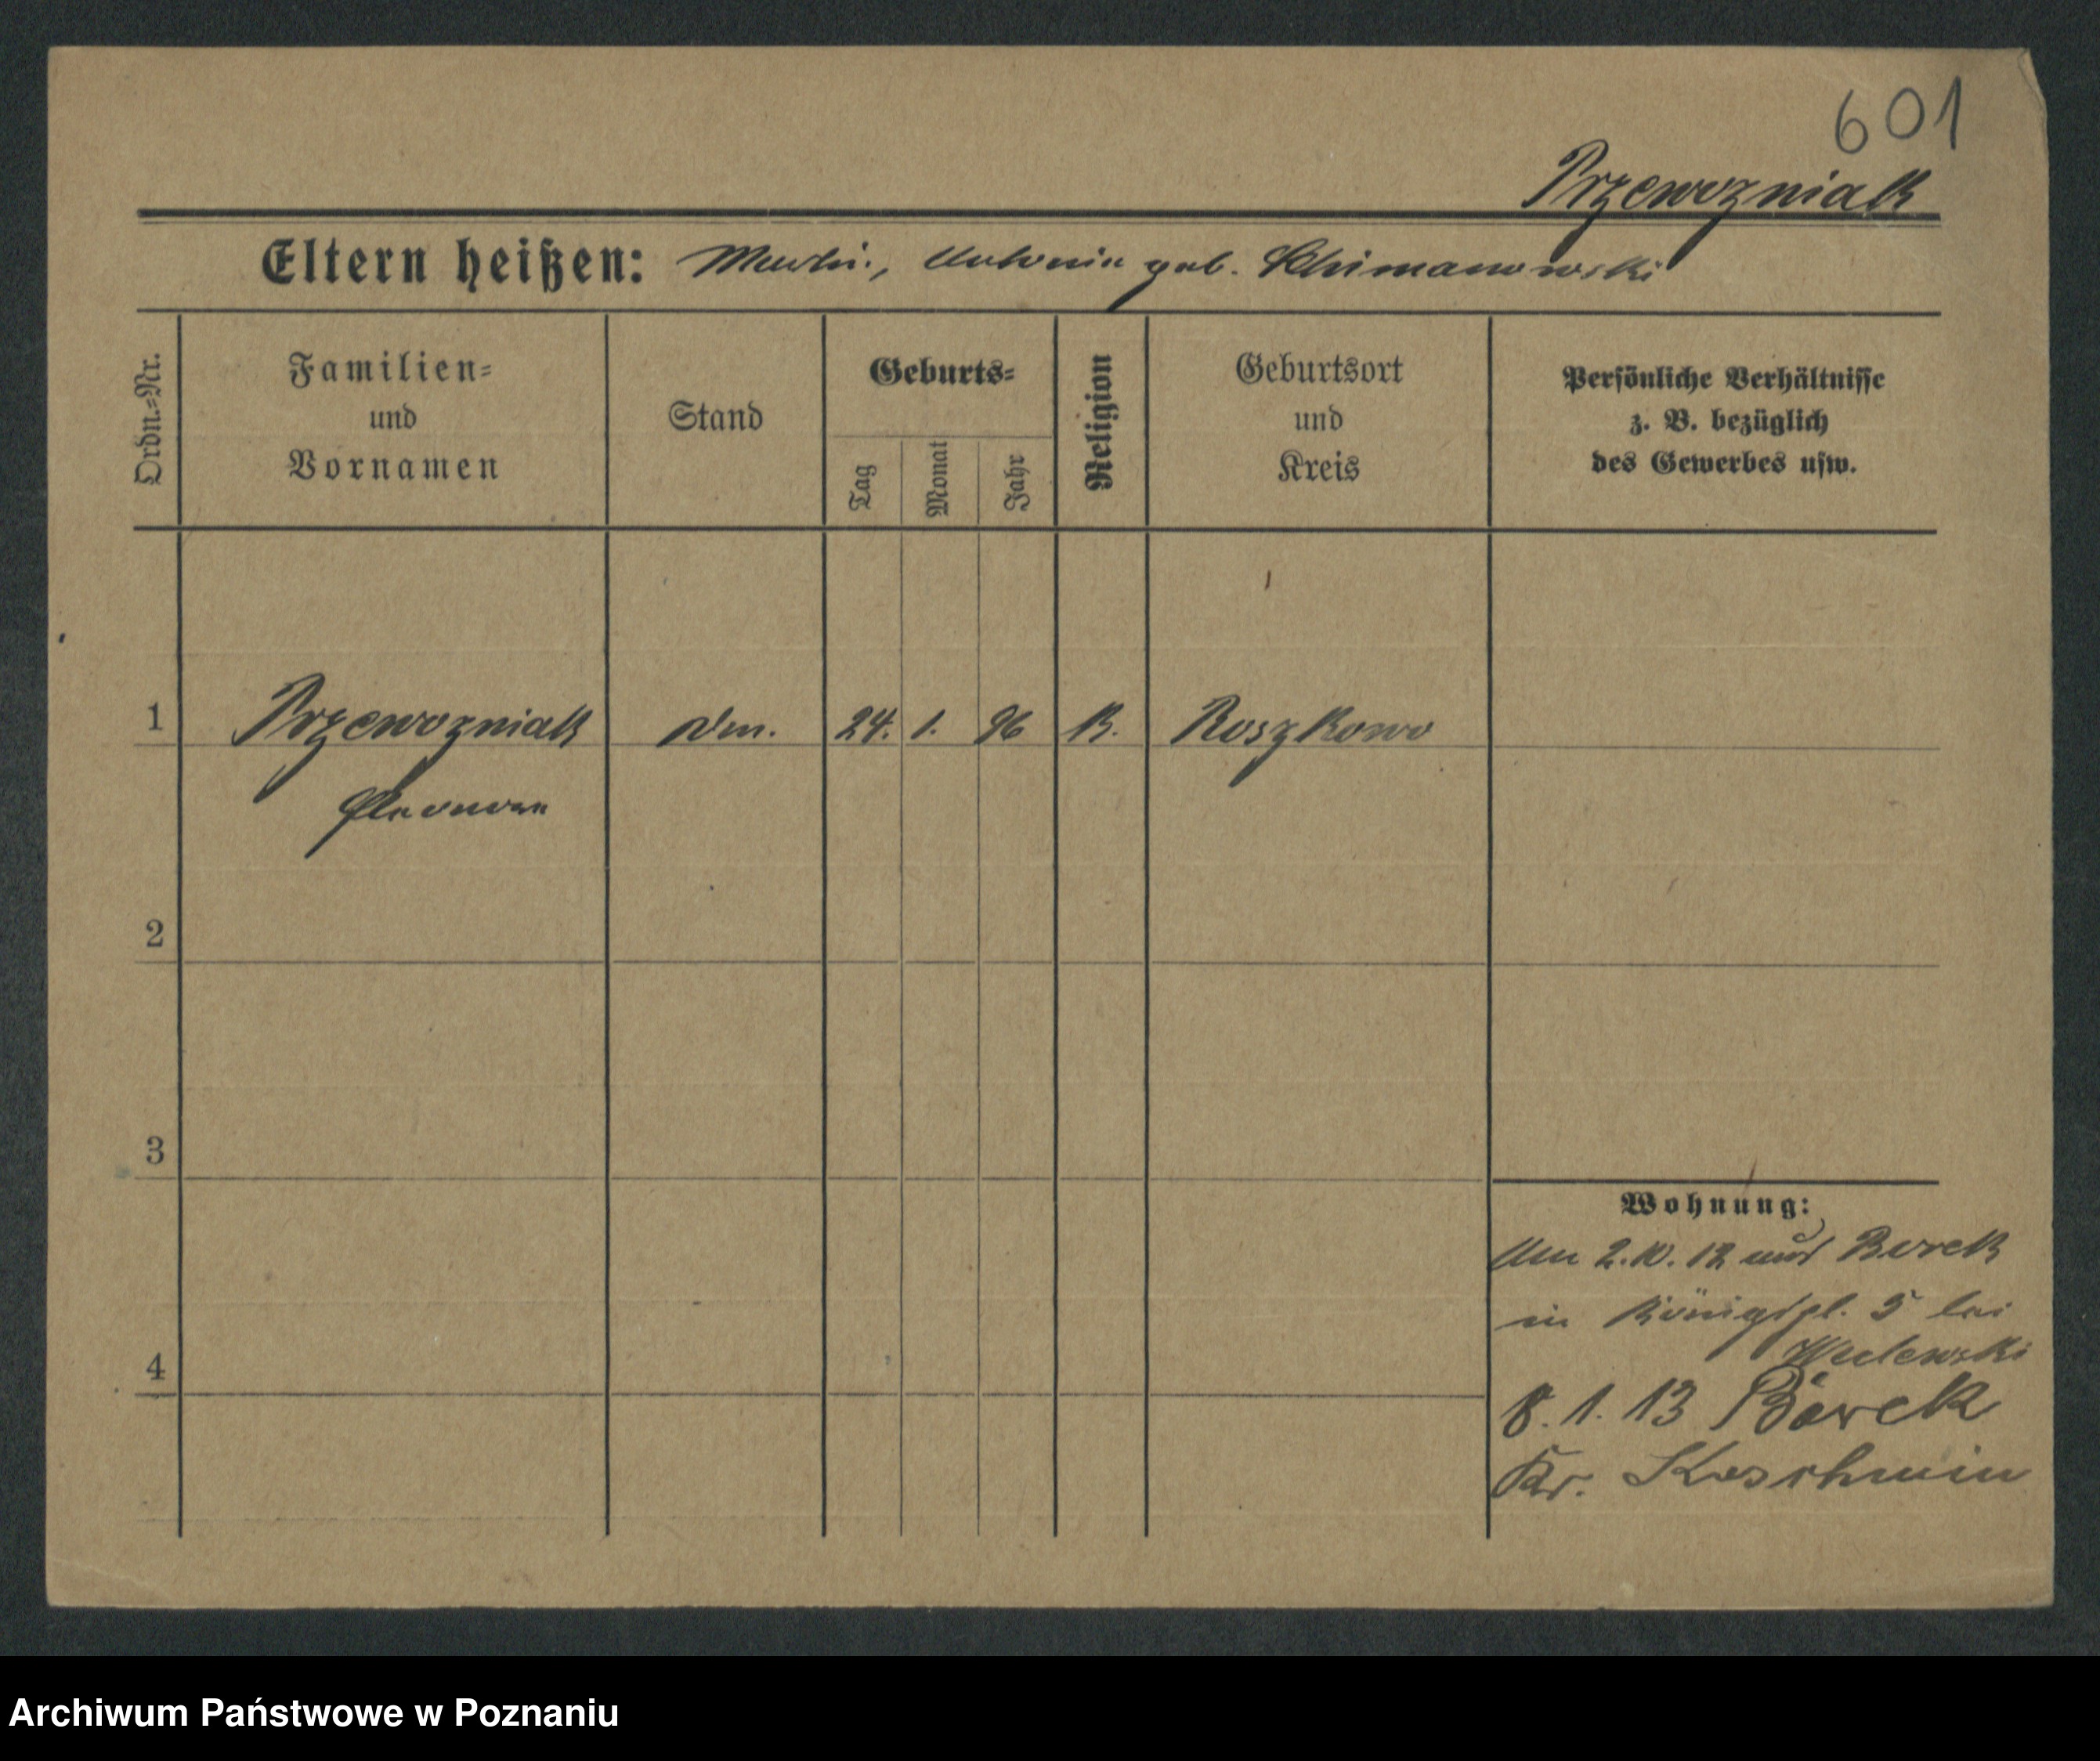 601
Przewozniak
Eltern heißen: Martin, Antonia geb. Schimanowski
Ordn.=Nr.
Familien=
und
Vornamen
Stand
Geburts=
Tag
Monat
Jahr
Religion
Geburtsort
und
Kreis
Persönliche Verhältnisse
z. B. bezüglich
des Gewerbes usw.
1 Przewozniak 24. 1. 96 K. Roszkowo
2
3
4
Wohnung:
2.10.12 aus Borek
in Königspl. 5 bei
8.1.13 Borek
Kr. Koschmin
Archiwum Państwowe w Poznaniu